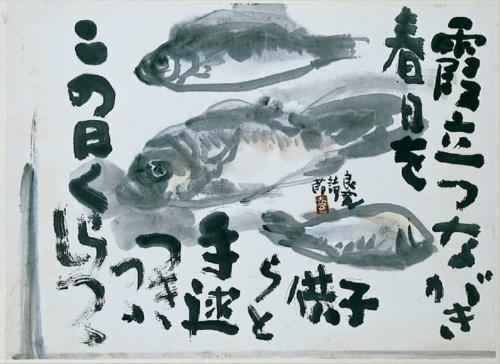 霞立つながき
春日を
子供
らと
手毬
つきつつ
この日くらしつ
良寛
詩